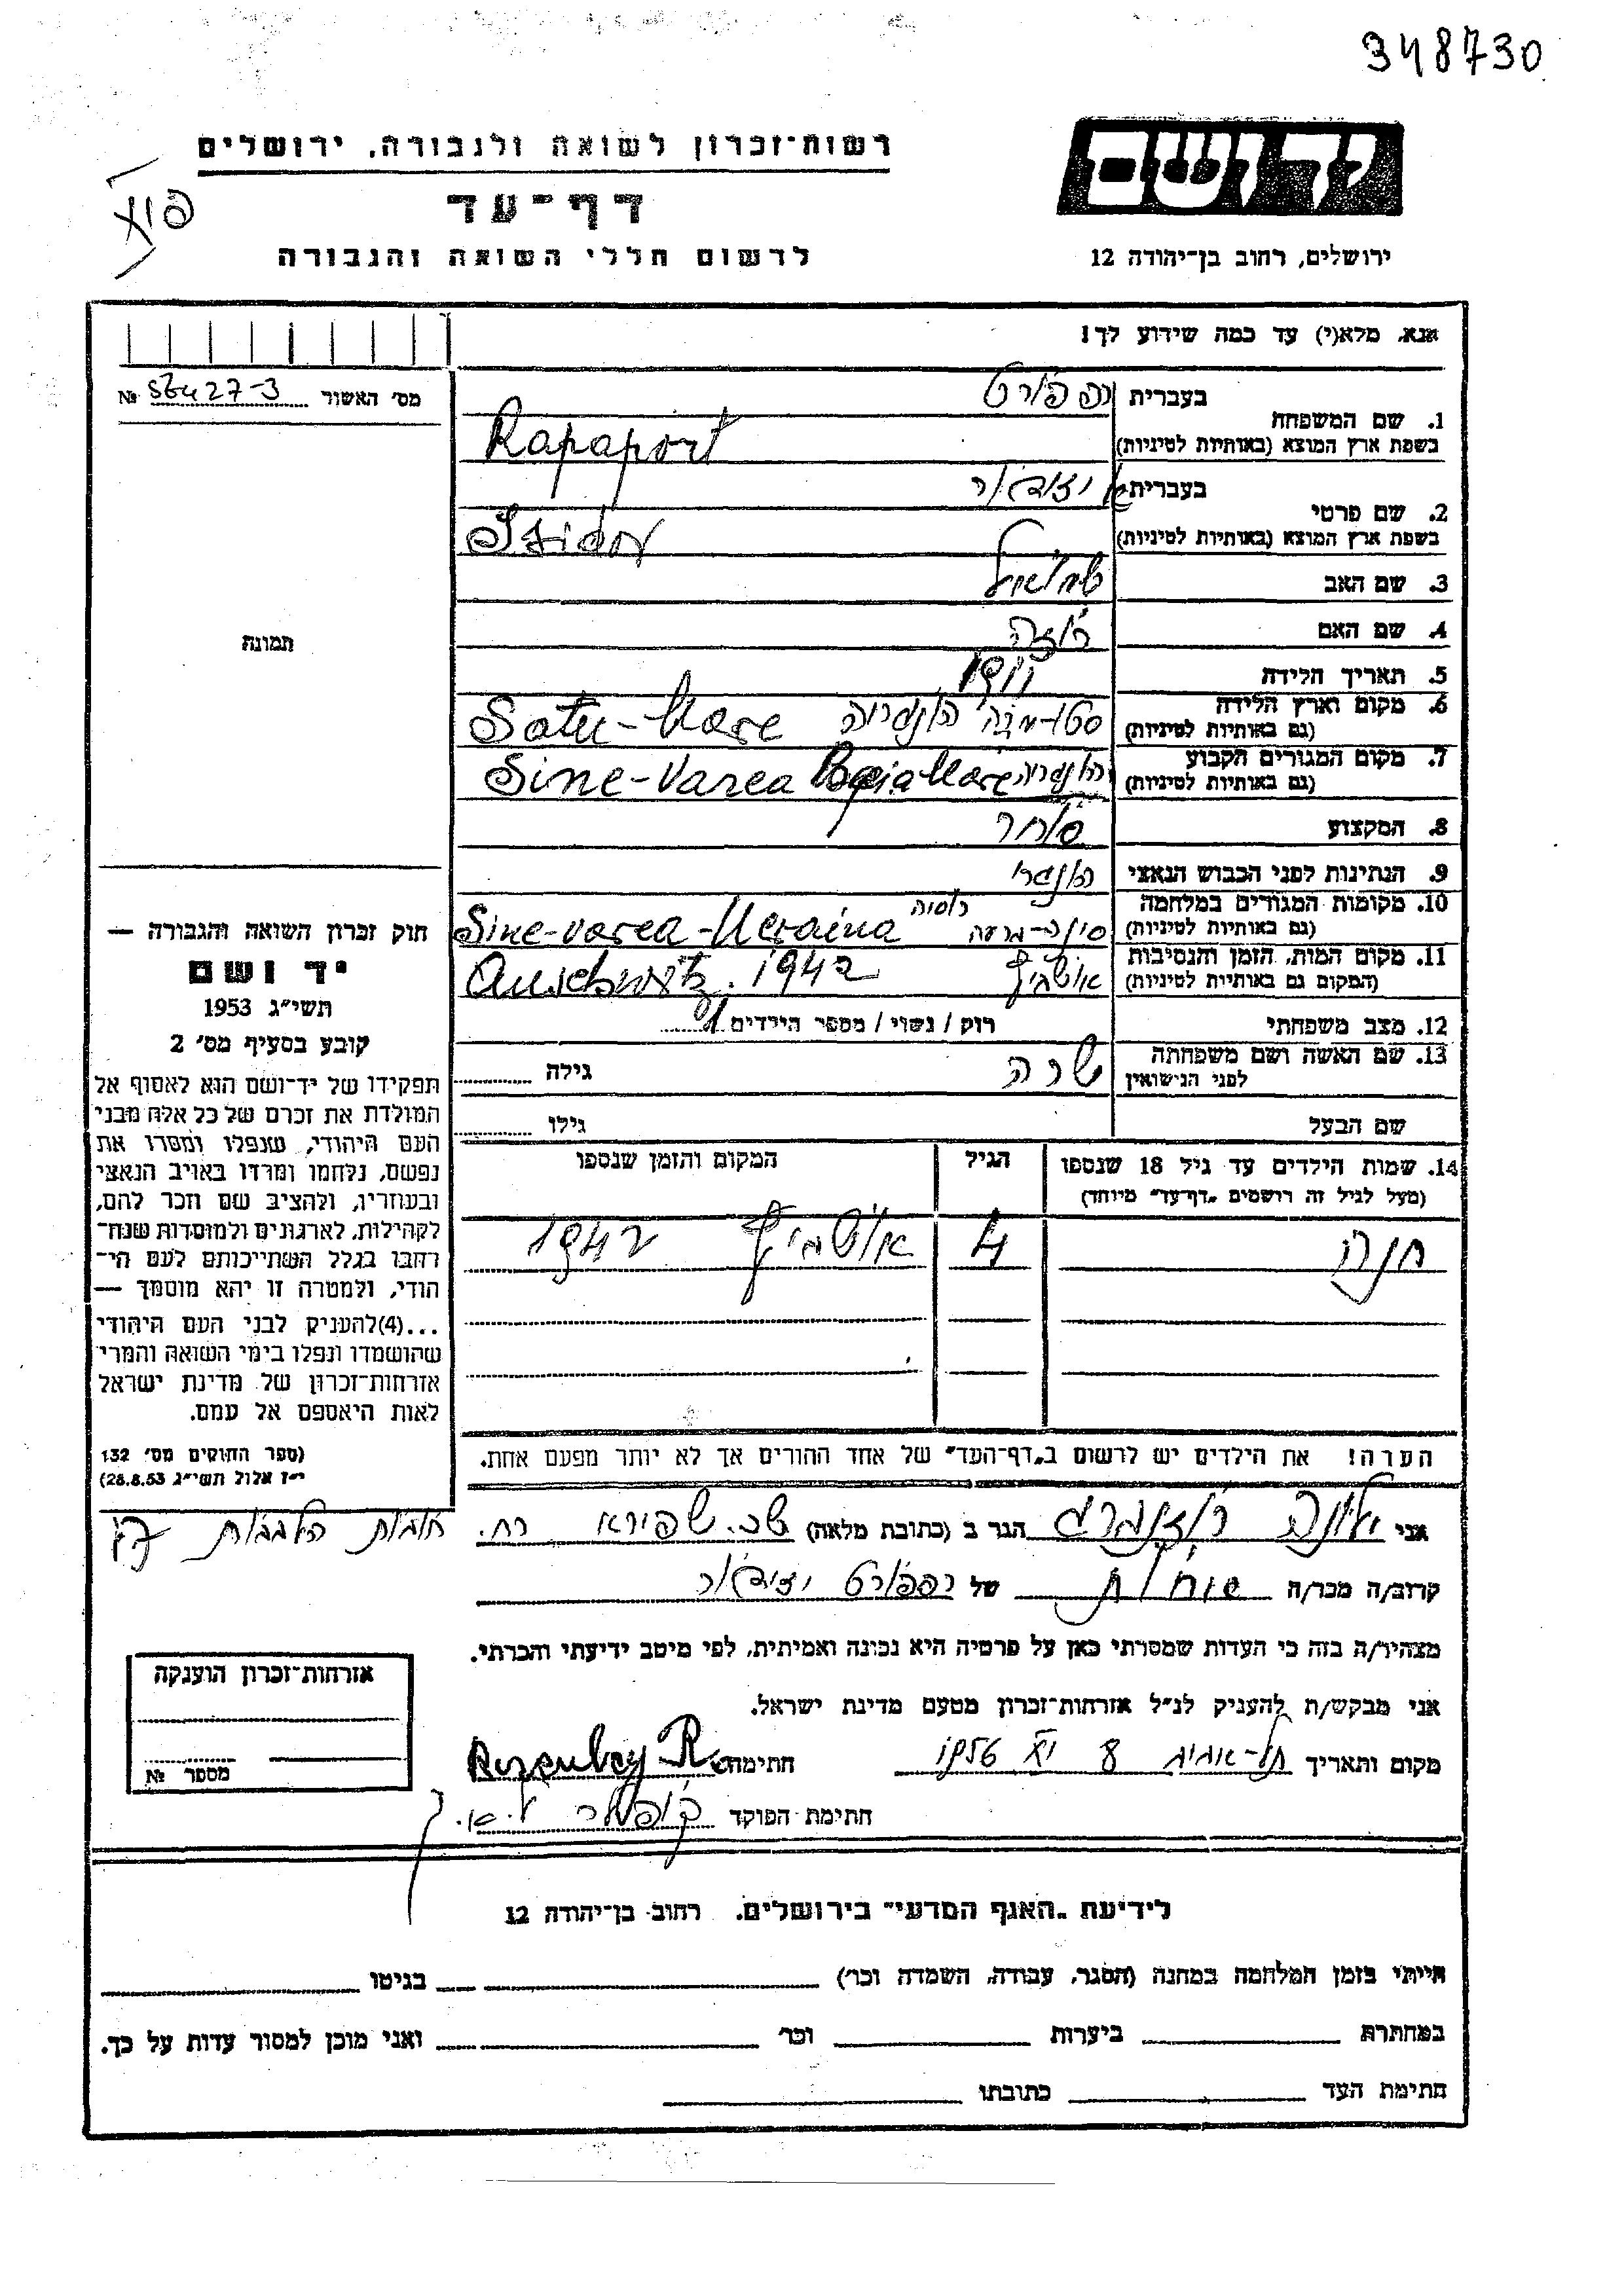 348730
יד ושם
רשות־זכרון לשואה ולגבורה, ירושלים
דף־עד
לרשום חללי השואה והגבורה
ירושלים, רחוב בן־יהודה 12
אנא, מלא(י) עד כמה שידוע לך!
מס׳ האשור № 56427-3
1. שם המשפחה
בעברית רפפורט
בשפת ארץ המוצא (באותיות לטיניות) Rapaport
2. שם פרטי
בעברית איזידור
בשפת ארץ המוצא (באותיות לטיניות) Izidor
3. שם האב שמואל
4. שם האם רוזה
5. תאריך הלידה 1911
6. מקום וארץ הלידה (גם באותיות לטיניות) סטו-מרה הונגריה Satu-Mare
7. מקום המגורים הקבוע (גם באותיות לטיניות) הונגריה Sine-Varea Baia Mare
8. המקצוע סוחר
9. הנתינות לפני הכבוש הנאצי הונגרי
10. מקומות המגורים במלחמה (גם באותיות לטיניות) רוסיה Sine-varea-Ucraina
11. מקום המות, הזמן והנסיבות (המקום גם באותיות לטיניות) אושביץ Auschwitz. 1942
12. מצב משפחתי רוק / נשוי / מספר הילדים 1
13. שם האשה ושם משפחתה לפני הנישואין שרה גילה
שם הבעל גילו
14. שמות הילדים עד גיל 18 שנספו (מעל לגיל זה רושמים „דף־עד״ מיוחד) הגיל המקום והזמן שנספו
חנה 4 אושביץ 1942
הערה! את הילדים יש לרשום ב„דף־העד״ של אחד ההורים אך לא יותר מפעם אחת.
תמונה
חוק זכרון השואה והגבורה —
יד ושם
תשי״ג 1953
קובע בסעיף מס׳ 2
תפקידו של יד־ושם הוא לאסוף אל
המולדת את זכרם של כל אלה מבני
העם היהודי, שנפלו ומסרו את
נפשם, נלחמו ומרדו באויב הנאצי
ובעוזריו, ולהציב שם וזכר להם,
לקהילות, לארגונים ולמוסדות שנח־
רבו בגלל השתייכותם לעם הי־
הודי, ולמטרה זו יהא מוסמך —
...(4)להעניק לבני העם היהודי
שהושמדו ונפלו בימי השואה והמרי
אזרחות־זכרון של מדינת ישראל
לאות היאספם אל עמם.
(ספר החוקים מס׳ 132
י״ז אלול תשי״ג 28.8.53)
אני רוזנברג הגר ב (כתובת מלאה) שכ. שפירא רח. חובות הלבבות
קרוב/ה מכר/ה של רפפורט איזידור
מצהיר/ה בזה כי העדות שמסרתי כאן על פרטיה היא נכונה ואמיתית, לפי מיטב ידיעתי והכרתי.
אני מבקש/ת להעניק לנ״ל אזרחות־זכרון מטעם מדינת ישראל.
מקום ותאריך תל-אביב חתימה
חתימת הפוקד
אזרחות־זכרון הוענקה
מספר №
לידיעת „האגף המדעי״ בירושלים. רחוב בן־יהודה 12
הייתי בזמן המלחמה במחנה (הסגר, עבודה, השמדה וכו׳) בגיטו
במחתרת ביערות וכו׳ ואני מוכן למסור עדות על כך.
חתימת העד כתובתו